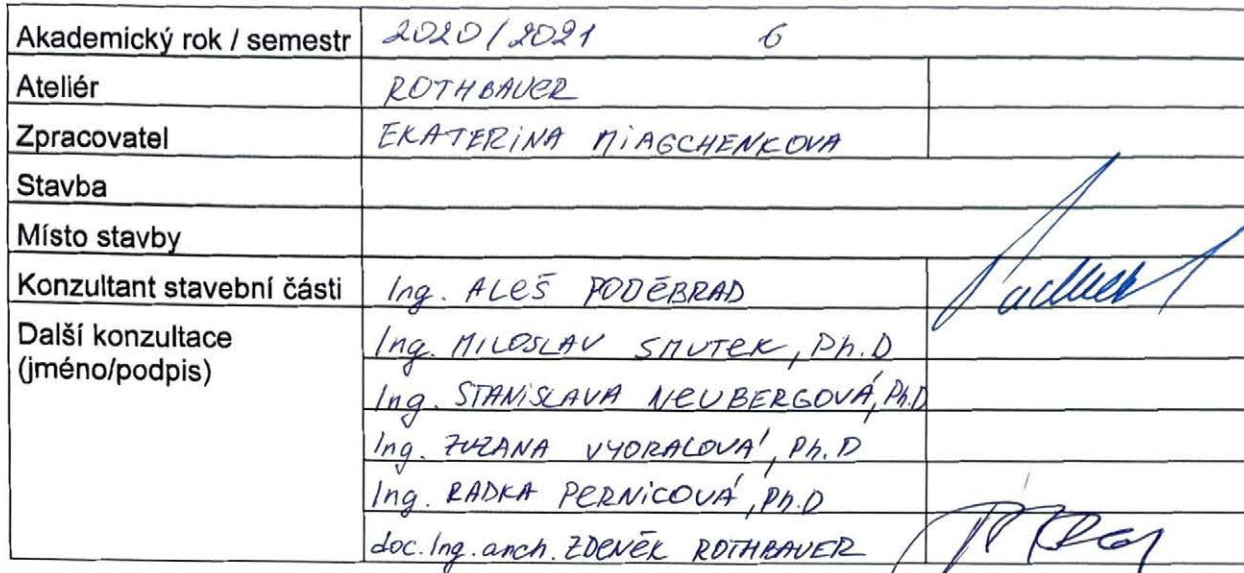 Akademický rok / semestr 2020/2021 6
Ateliér ROTHBAUER
Zpracovatel EKATERINA MIAGCHENKOVA
Stavba
Místo stavby
Konzultant stavební části Ing. ALEŠ PODĚBRAD
Další konzultace Ing. MILOSLAV SMUTEK, Ph.D
(jméno/podpis)
Ing. STANISLAVA NEUBERGOVÁ, Ph.D
Ing. ZUZANA VYORALOVÁ, Ph.D
Ing. RADKA PERNICOVÁ, Ph.D
doc. Ing. arch. ZDENĚK ROTHBAUER